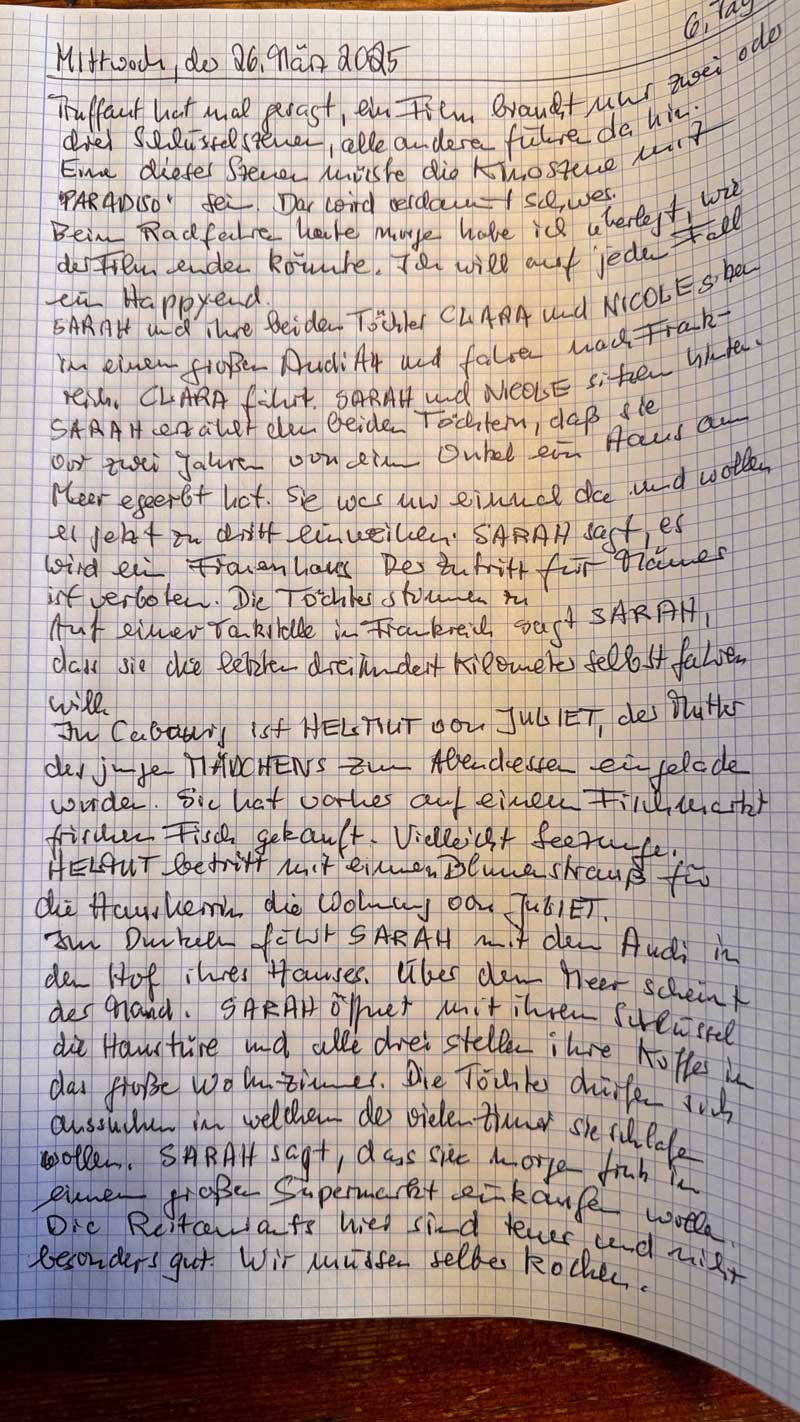 6. Tag
Mittwoch, der 26. März 2025
Truffaut hat mal gesagt, ein Film braucht nur zwei oder
drei Schlüsselszenen, alle anderen führen da hin.
Eine dieser Szenen müsste die Kinoszene mit
"PARADISO" sein. Das wird verdammt schwer.
Beim Radfahren heute morgen habe ich überlegt, wie
der Film enden könnte. Ich will auf jeden Fall
ein Happyend.
SARAH und ihre beiden Töchter CLARA und NICOLE sitzen
in einem großen Audi A4 und fahren nach Frank-
reich. CLARA fährt. SARAH und NICOLE sitzen hinten.
SARAH erzählt den beiden Töchtern, daß sie
vor zwei Jahren von ein Onkel ein Haus am
Meer egeerbt hat. Sie war nur einmal da und wollen
es jetzt zu dritt einweihen. SARAH sagt, es
wird ein Frauenhaus. Der Zutritt für Männer
ist verboten. Die Töchter stimmen zu
Auf einer Tankstelle in Frankreich sagt SARAH,
dass sie die letzten dreihundert Kilometer selbst fahren
will.
In Cabourg ist HELMUT von JULIET, der Mutter
des jungen MÄDCHENS zum Abendessen eingeladen
worden. Sie hat vorher auf einem Fischmarkt
frischen Fisch gekauft. Vielleicht Seezunge.
HELMUT betritt mit einem Blumenstrauß für
die Hausherrin die Wohnung von JULIET.
Im Dunkeln fährt SARAH mit dem Audi in
den Hof ihres Hauses. Über dem Meer scheint
der Mond. SARAH öffnet mit ihrem Schlüssel
die Haustüre und alle drei stellen ihre Koffer in
das große Wohnzimmer. Die Töchter dürfen sich
aussuchen in welchem der vielen Zimmer sie schlafen
wollen. SARAH sagt, dass sie morgen früh in
einem großen Supermarkt einkaufen wollen.
Die Restaurants hier sind teuer und nicht
besonders gut. Wir müssen selber kochen.